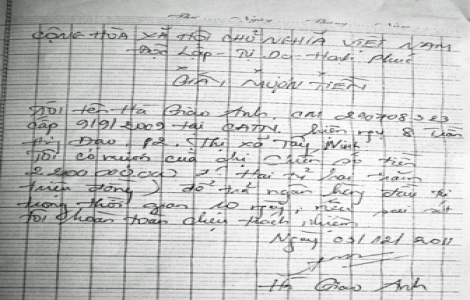 CỘNG HÒA XÃ HỘI CHỦ NGHĨA VIỆT NAM
Độc Lập - Tự Do - Hạnh Phúc
GIẤY MƯỢN TIỀN
Tôi tên Hà Giao Anh. CM 290708323
cấp 9/9/2009 tại CATN. hiện ngụ 8 Trần
Hưng Đạo. P2. Thị xã Tây Ninh
Tôi có mượn của chị Hiền số tiền
2.200.000.000 Hai tỷ hai trăm
triệu đồng) để trả ngân hàng
trong thời gian 10 ngày, nếu sai
tôi hoàn toàn chịu trách nhiệm
Ngày 03/12/2011
Hà Giao Anh